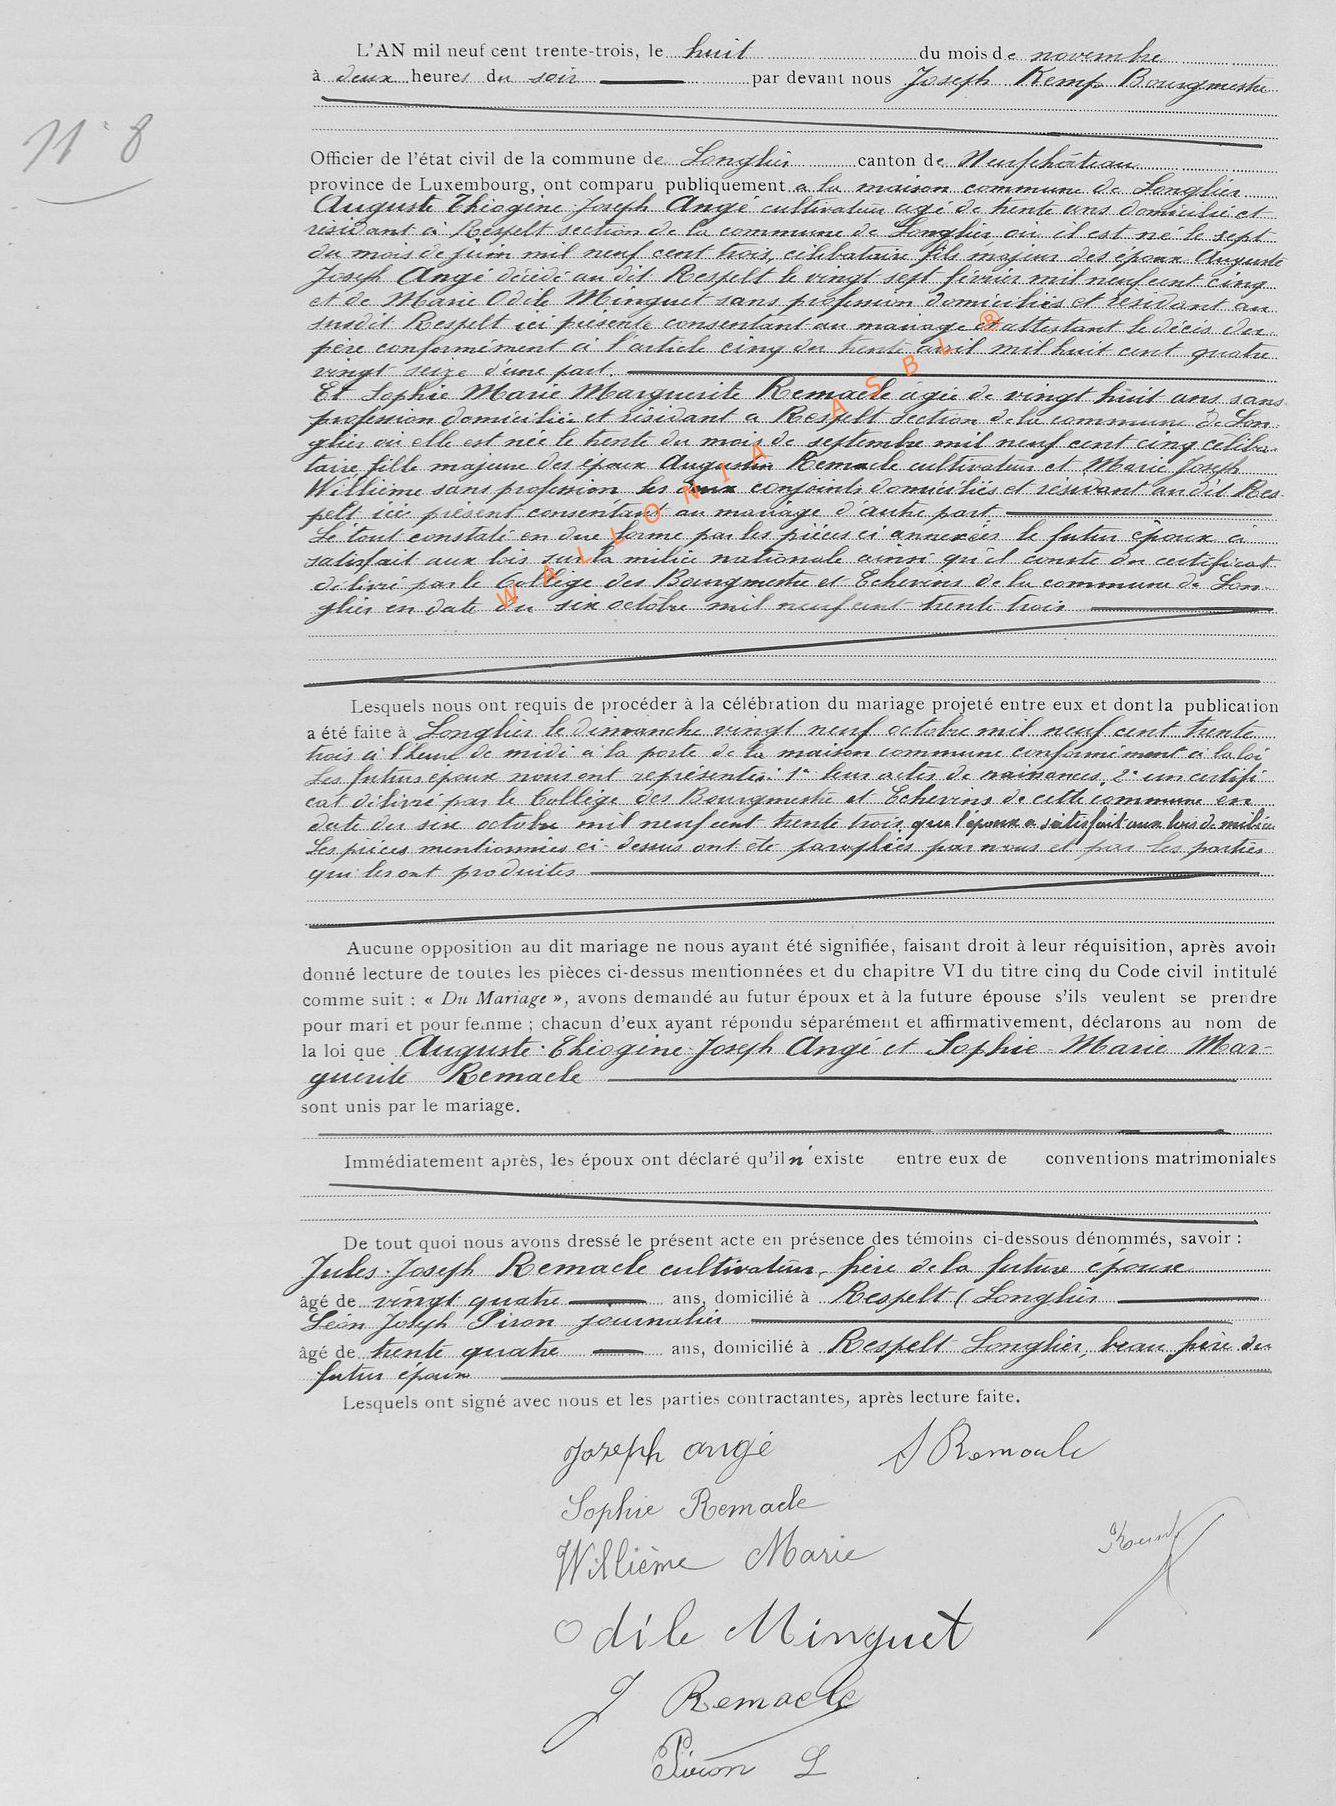 N° 8
L'AN mil neuf cent trente-trois, le huit du mois de novembre
à deux heures du soir par devant nous Joseph Kemp Bourgmestre
Officier de l'état civil de la commune de Longlier canton de Neufchâteau
province de Luxembourg, ont comparu publiquement a la maison commune de Longlier
Auguste Théogène Joseph Angé cultivateur agé de trente ans domicilié et
résidant à Respelt section de la commune de Longlier où il est né le sept
du mois de juin mil neuf cent trois, célibataire fils majeur des époux Auguste
Joseph Angé décédé au dit Respelt le vingt sept février mil neuf cent cinq
et de Marie Odile Minguet sans profession domiciliés et résidant au
susdit Respelt ici présente consentant au mariage et attestant le décès du
père conformément à l'article cinq du trente avril mil huit cent quatre
vingt seize d'une part
Et Sophie Marie Marguerite Remacle âgée de vingt huit ans sans
profession domiciliée et résidant a Respelt section de la commune de Lon
glier où elle est née le trente du mois de septembre mil neuf cent cinq céliba-
taire fille majeure des époux Augustin Remacle cultivateur et Marie Joseph
Willième sans profession les deux conjoints domiciliés et résidant au dit Res-
pelt ici présent consentant au mariage d'autre part
Le tout constaté en due forme par les pièces ci annexées le futur époux a
satisfait aux lois sur la milice nationale ainsi qu'il conste du certificat
délivré par le Collège des Bourgmestre et Echevins de la commune de Lon-
glier en date du six octobre mil neuf cent trente trois
WALLONIA ASBL ®
Lesquels nous ont requis de procéder à la célébration du mariage projeté entre eux et dont la publication
a été faite à Longlier le dimanche vingt neuf octobre mil neuf cent trente
trois à l'heure de midi à la porte de la maison commune conformément à la loi
Les futurs époux nous ont représenté: 1° leur actes de naissances, 2° un certifi
cat délivré par le Collège des Bourgmestre et Echevins de cette commune en
date du six octobre mil neuf cent trente trois que l'époux a satisfait aux lois de milice
Les pièces mentionnées ci-dessus ont été paraphées par nous et par les parties
qui les ont produites
Aucune opposition au dit mariage ne nous ayant été signifiée, faisant droit à leur réquisition, après avoir
donné lecture de toutes les pièces ci-dessus mentionnées et du chapitre VI du titre cinq du Code civil intitulé
comme suit : « Du Mariage », avons demandé au futur époux et à la future épouse s'ils veulent se prendre
pour mari et pour femme ; chacun d'eux ayant répondu séparément et affirmativement, déclarons au nom de
la loi que Auguste-Théogène-Joseph Angé et Sophie-Marie Mar-
guerite Remacle
sont unis par le mariage.
Immédiatement après, les époux ont déclaré qu'il n'existe entre eux de conventions matrimoniales
De tout quoi nous avons dressé le présent acte en présence des témoins ci-dessous dénommés, savoir :
Jules-Joseph Remacle cultivateur, frère de la future épouse
âgé de vingt quatre ans, domicilié à Respelt (Longlier
Léon Joseph Piron journalier
âgé de trente quatre ans, domicilié à Respelt Longlier, beau frère du
futur époux
Lesquels ont signé avec nous et les parties contractantes, après lecture faite.
Joseph angé A Remacle
Sophie Remacle
Willième Marie Kemp
Odile Minguet
J Remacle
Piron L